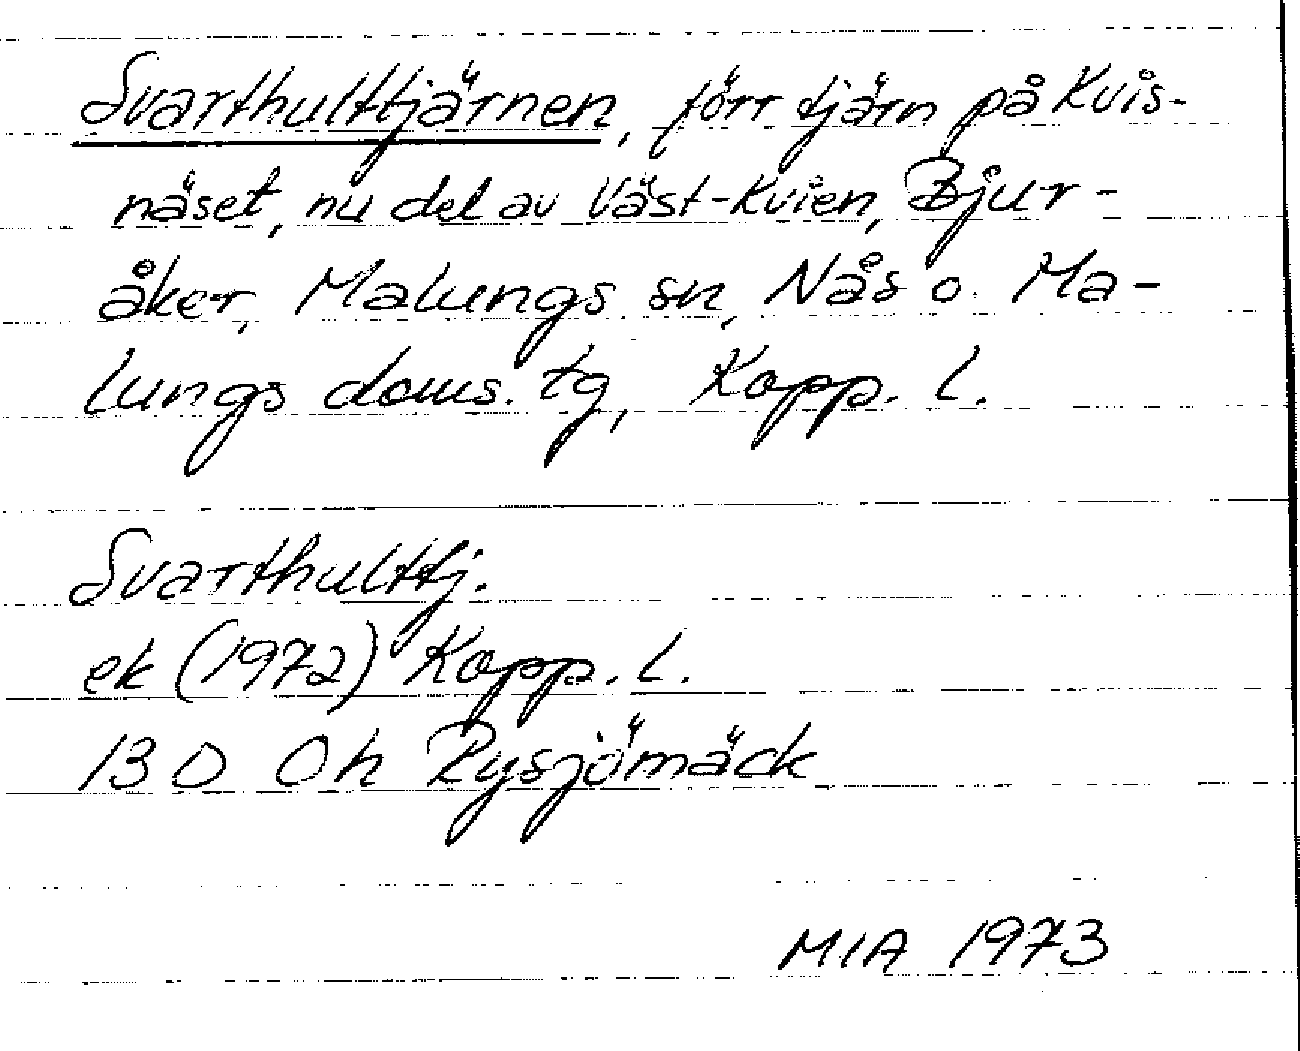 Svarthulttjärnen, förr tjärn på Kvis-
näset, nu del av Väst-Kvien, Bjur-
åker, Malungs sn, Nås o. Ma-
lungs doms. tg, Kopp. l.
Svarthulttj.
ek (1972) Kopp. l.
13 D 0h Rysjömäck
MIA 1973